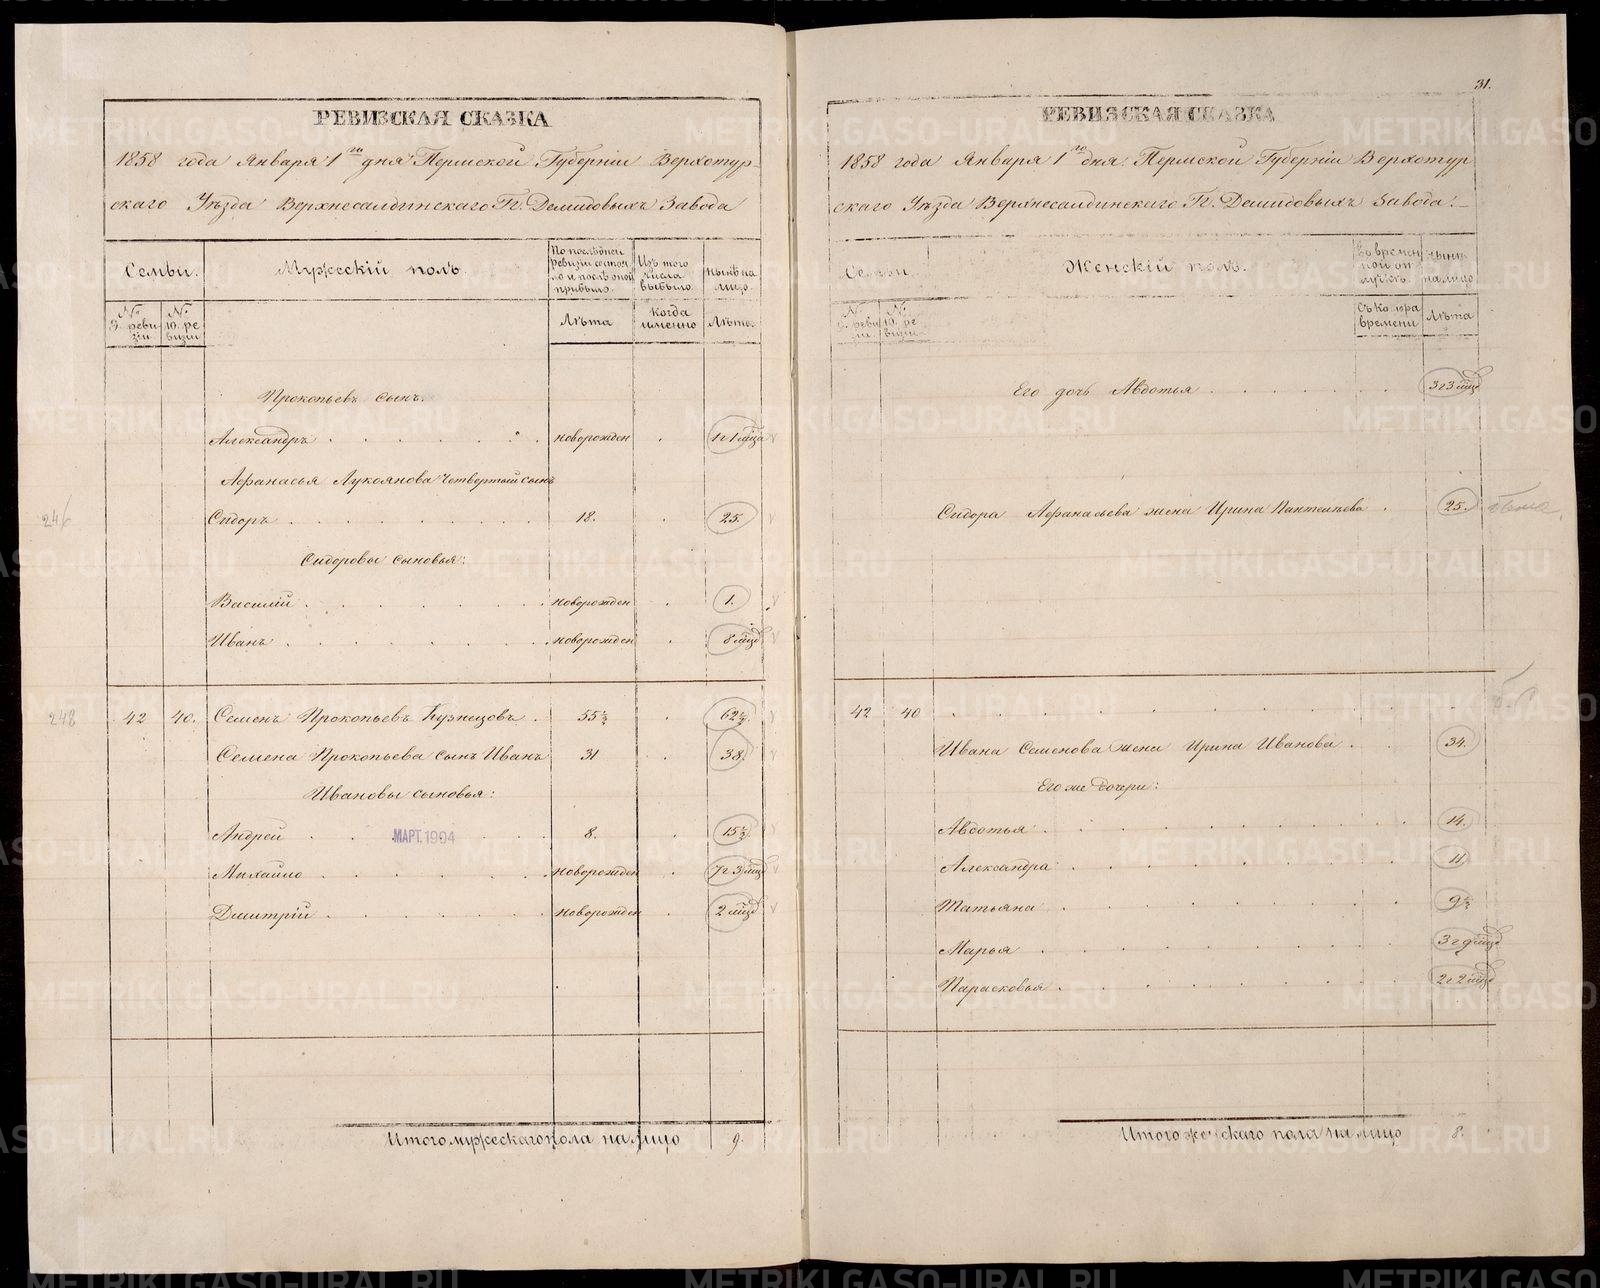 31.
РЕВИЗСКАЯ СКАЗКА
1858 года Января 1го дня Пермской Губерніи Верхотур-
скаго Уѣзда Верхнесалдинскаго Гг. Демидовыхъ Завода
Семьи.
Мужескій полъ.
По послѣдней ревизіи состояло и послѣ оной прибыло.
Изъ того числа выбыло
нынѣ на лицо.
№ 9. ревизіи
№ 10. ревизіи
Лѣта
Когда именно
Лѣта.
Прокопьевъ сынъ.
Александръ новорожден 1 г 1 мѣца
Афанасья Лукоянова четвертый сынъ
Сидоръ 18. 25.
Сидоровы сыновья:
Василій новорожден 1.
Иванъ новорожден 8 мѣцов
248 42 40. Семенъ Прокопьевъ Кузнецовъ 55½ 62½
Семена Прокопьева сынъ Иванъ 31 38
Ивановы сыновья:
Андрей 8. 15½
МАРТ.1994
Михайло новорожден 7 г 3 мѣцов
Дмитрій новорожден 2 мѣцов
Итого мужескаго пола на лицо 9.
РЕВИЗСКАЯ СКАЗКА
1858 года Января 1го дня Пермской Губерніи Верхотур
скаго Уѣзда Верхнесалдинскаго Гг. Демидовыхъ Завода.
Семьи.
Женскій полъ.
Во временной отлучкѣ.
нынѣ на лицо
№ 9. ревизіи
№ 10. ревизіи
Съ котора времени
Лѣта
Его дочь Авдотья 3 г 3 мѣцов
Сидора Афанасьева жена Ирина Пантелѣева 25.
42 40
Ивана Семенова жена Ирина Иванова 34.
Его же Дочери:
Авдотья 14.
Александра 11.
Татьяна 9½
Марья 3 г 9 мѣцов
Парасковья 2 г 2 мѣцов
Итого женскаго пола на лицо 8.
METRIKI.GASO-URAL.RU